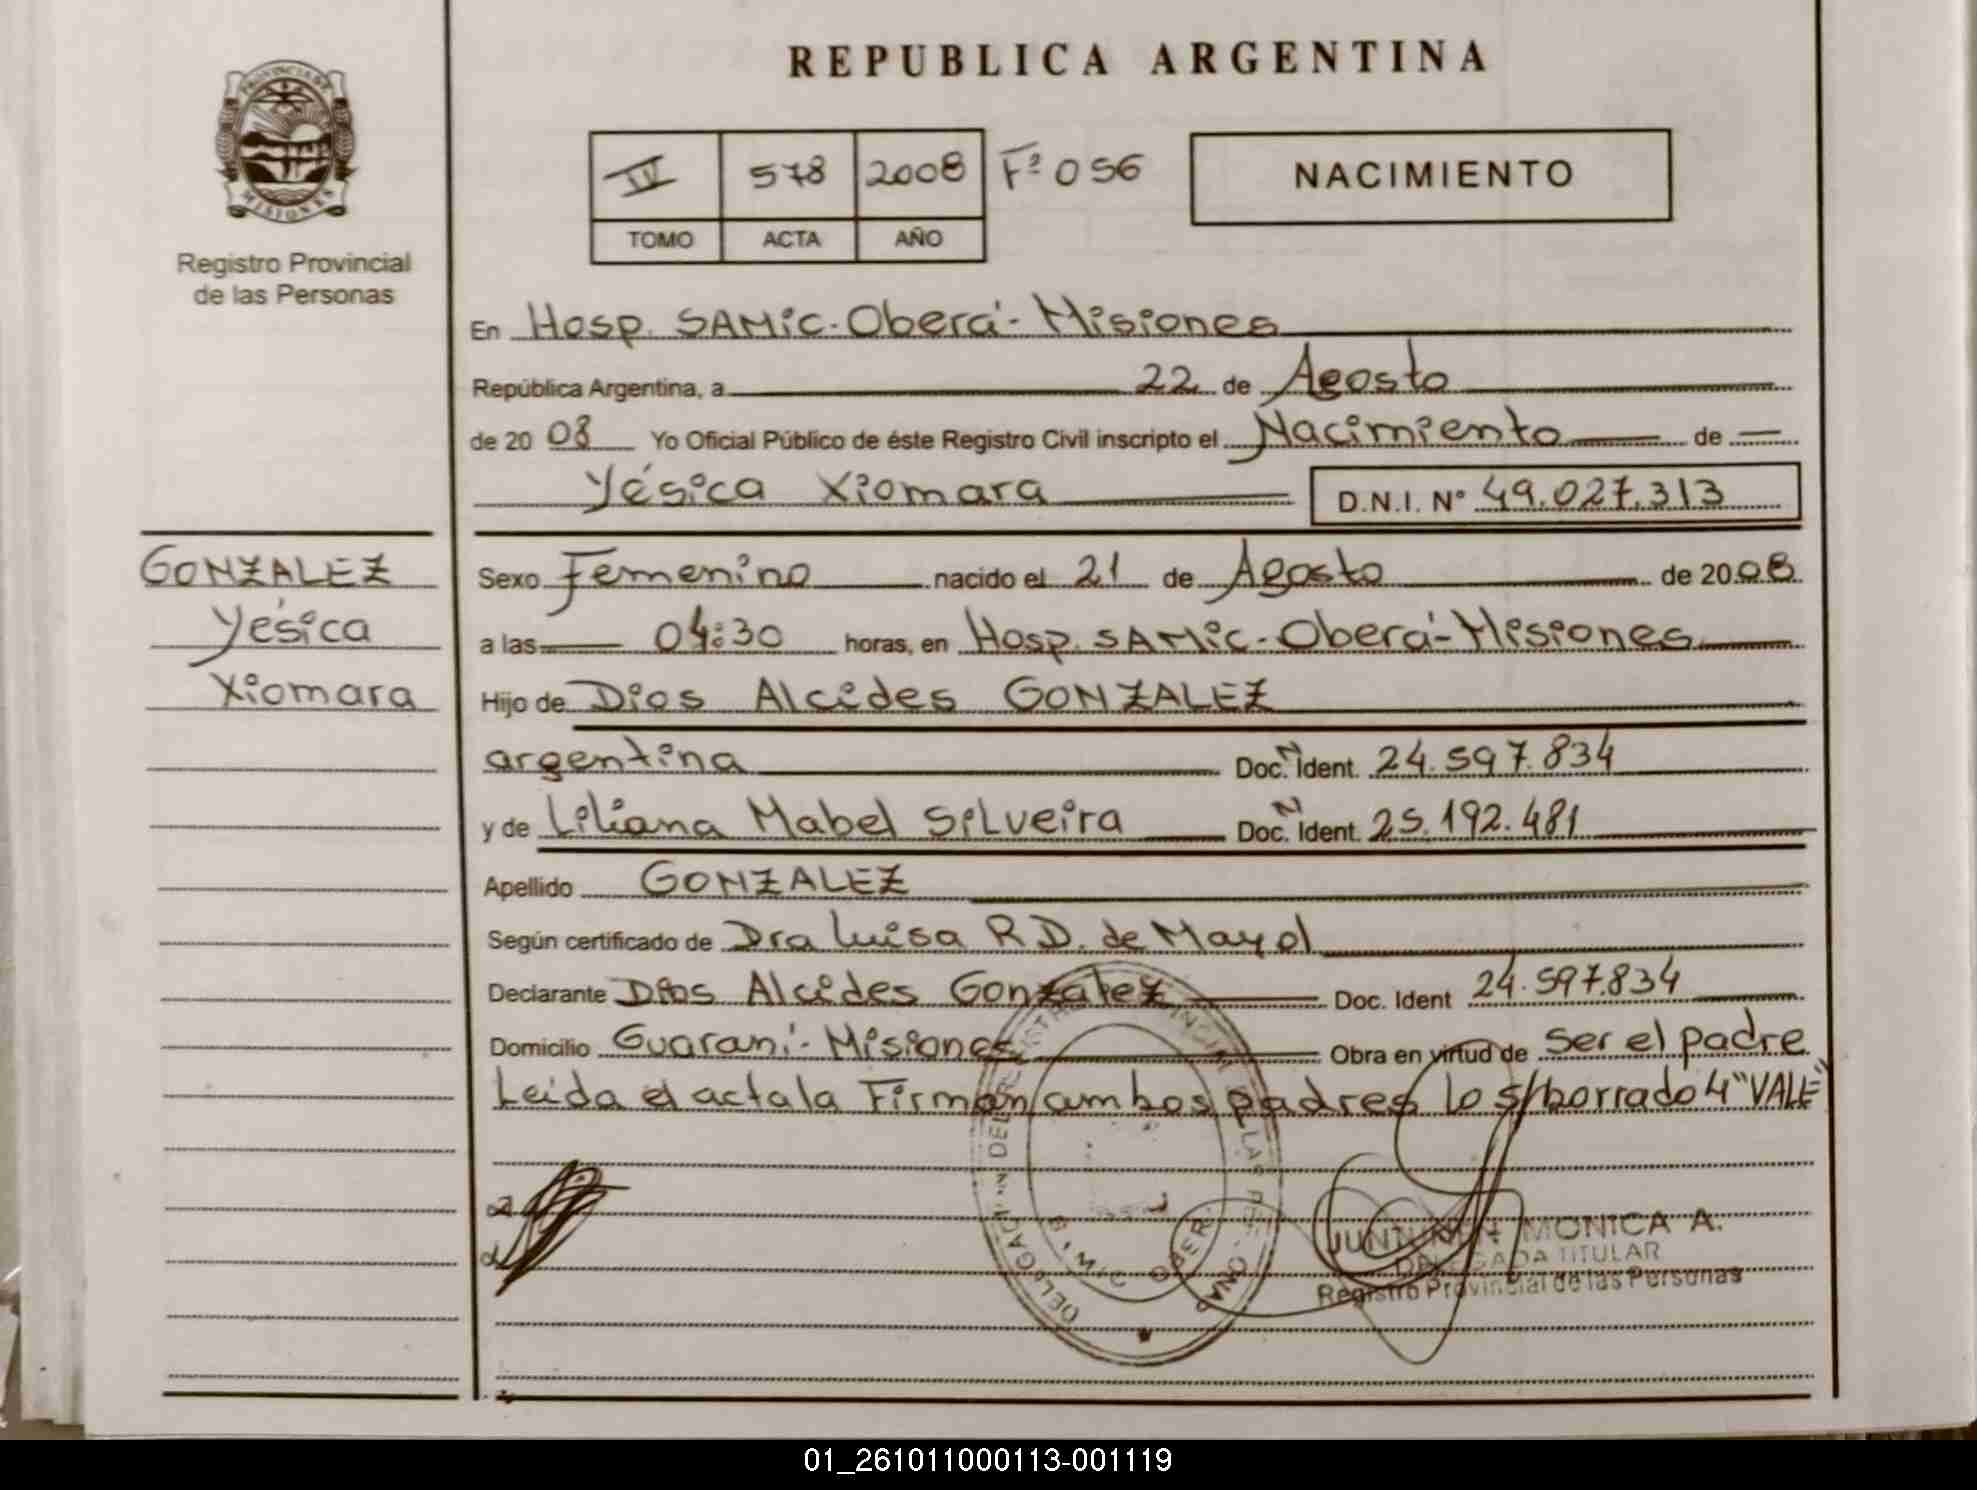 REPUBLICA ARGENTINA
PROVINCIA DE
MISIONES
Registro Provincial
de las Personas
IV 578 2008 Fº 056
TOMO ACTA AÑO
NACIMIENTO
En Hosp. SAMiC - Oberá - Misiones
República Argentina, a 22 de Agosto
de 20 08 Yo Oficial Público de éste Registro Civil inscripto el Nacimiento de
Yésica Xiomara D.N.I. Nº 49.027.313
GONZALEZ
Yésica
Xiomara
Sexo Femenino nacido el 21 de Agosto de 2008
a las 04:30 horas, en Hosp. SAMiC - Oberá - Misiones
Hijo de Dios Alcides GONZALEZ
argentina Doc. N Ident. 24.597.834
y de Liliana Mabel Silveira Doc. N Ident. 25.192.481
Apellido GONZALEZ
Según certificado de Dra Luisa R D. de Mayol
Declarante Dios Alcides Gonzalez Doc. Ident 24.597.834
Domicilio Guaraní - Misiones Obra en virtud de ser el padre
Leída el acta la Firman ambos padres lo s/borrado 4 "VALE"
MONICA A.
DELEGADA TITULAR
Registro Provincial de las Personas
01_261011000113-001119